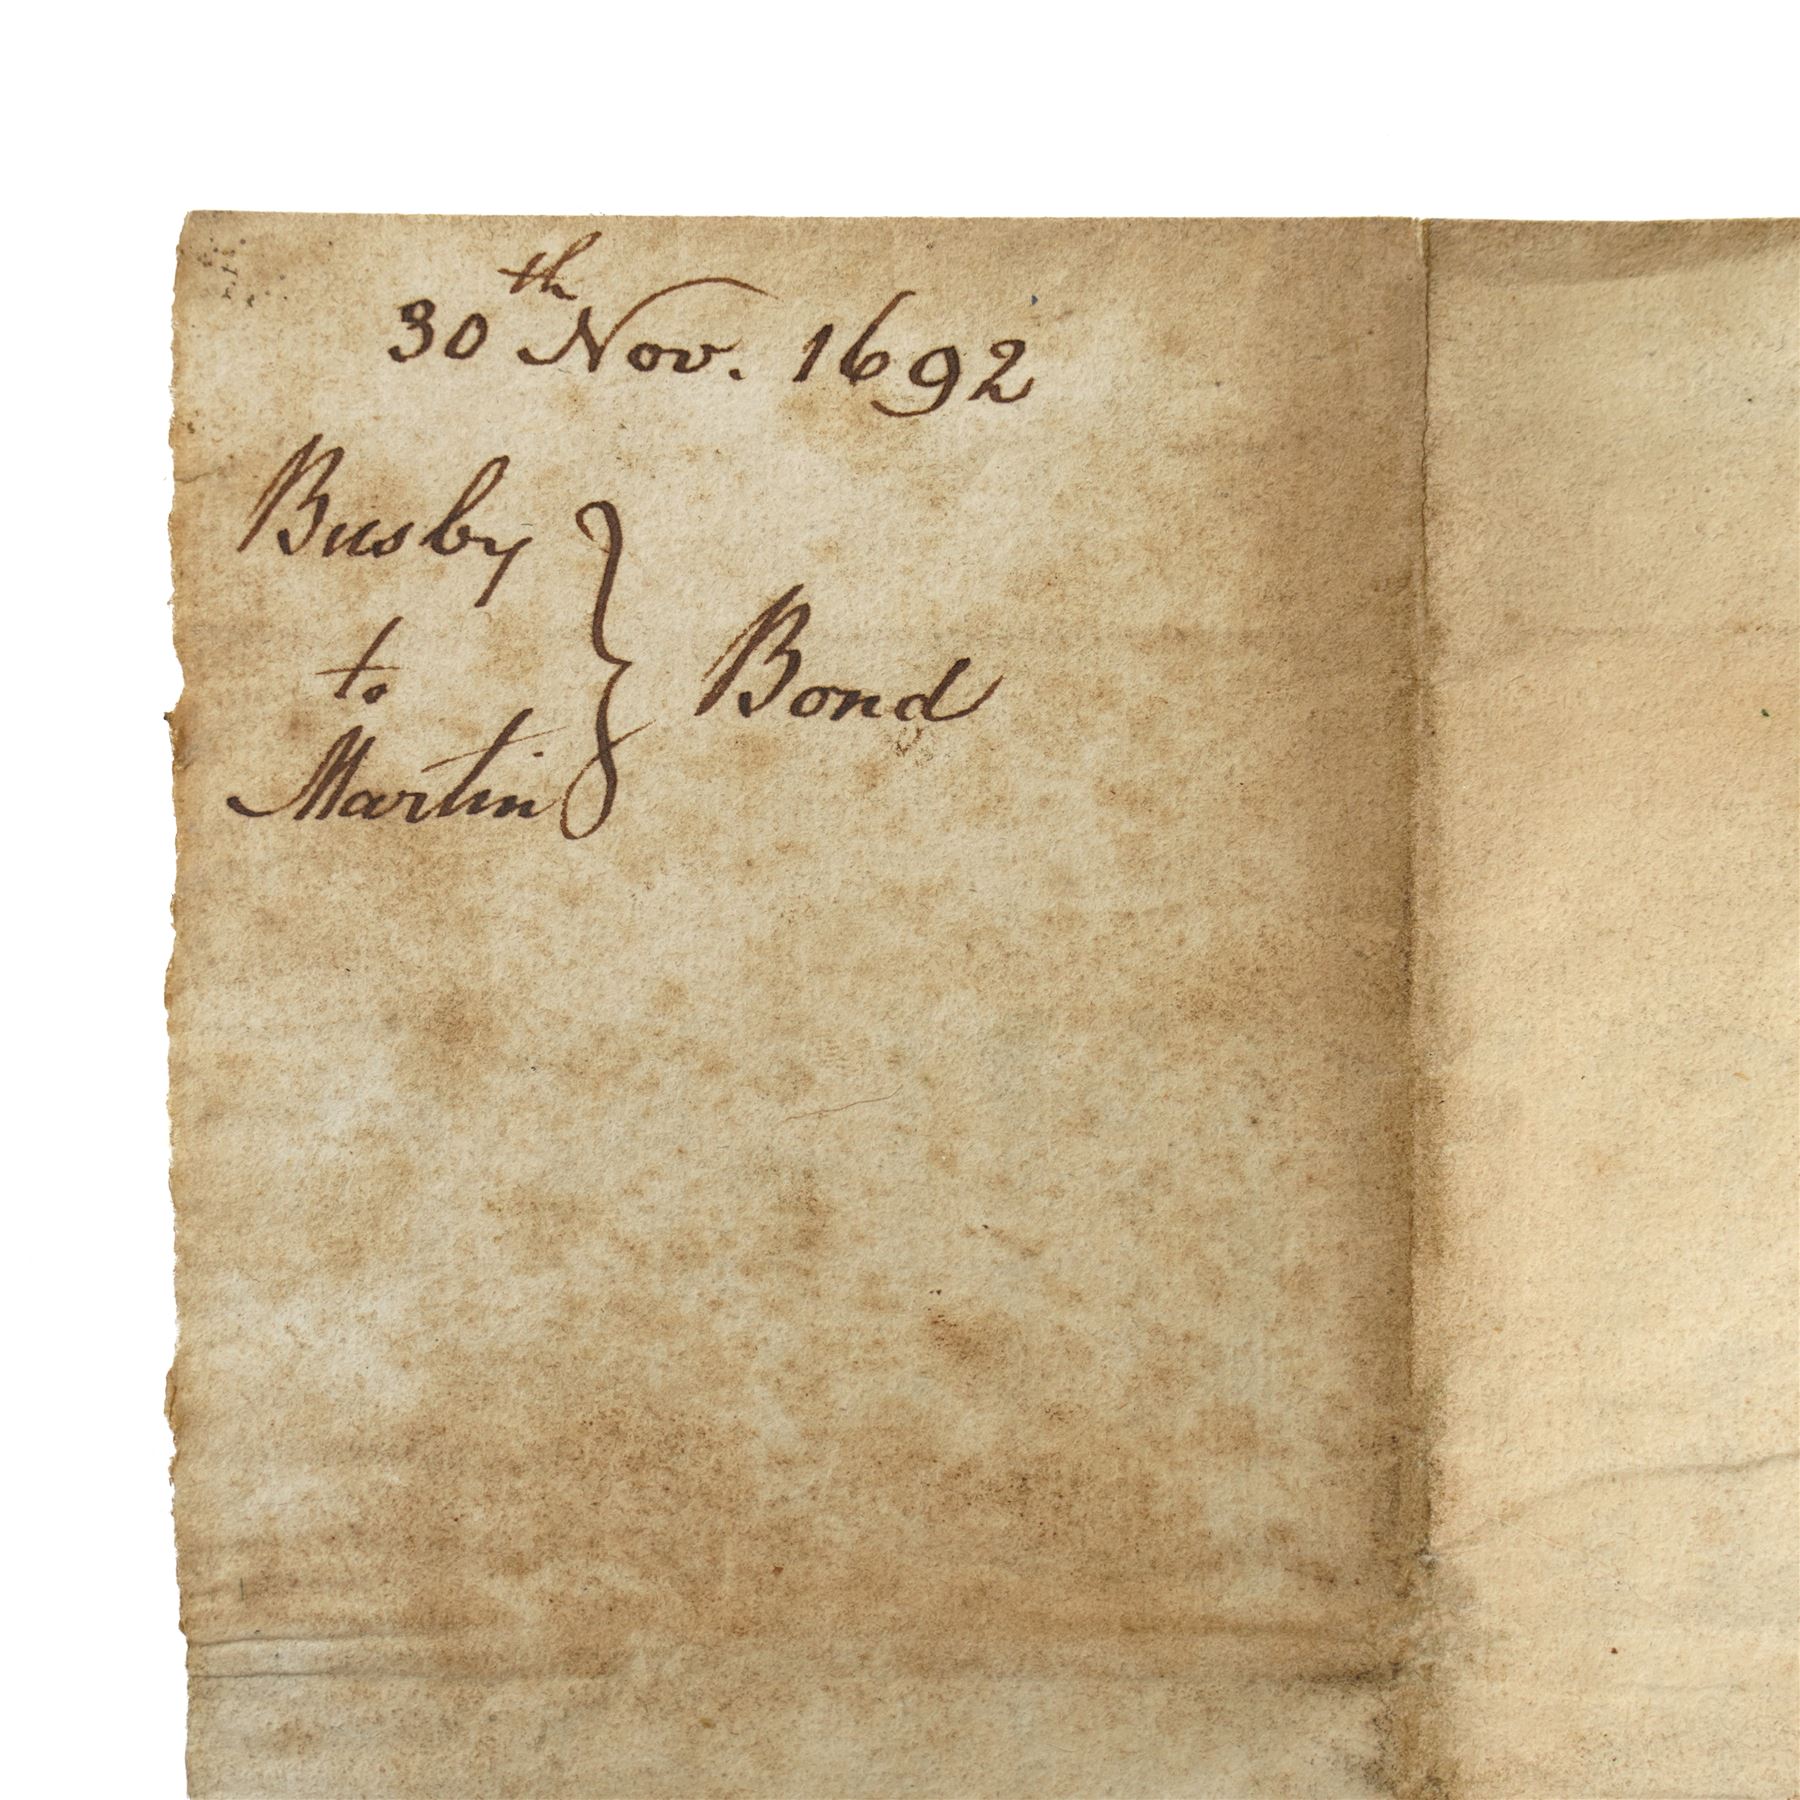 30th Nov. 1692
Busby
to
Martin
} Bond